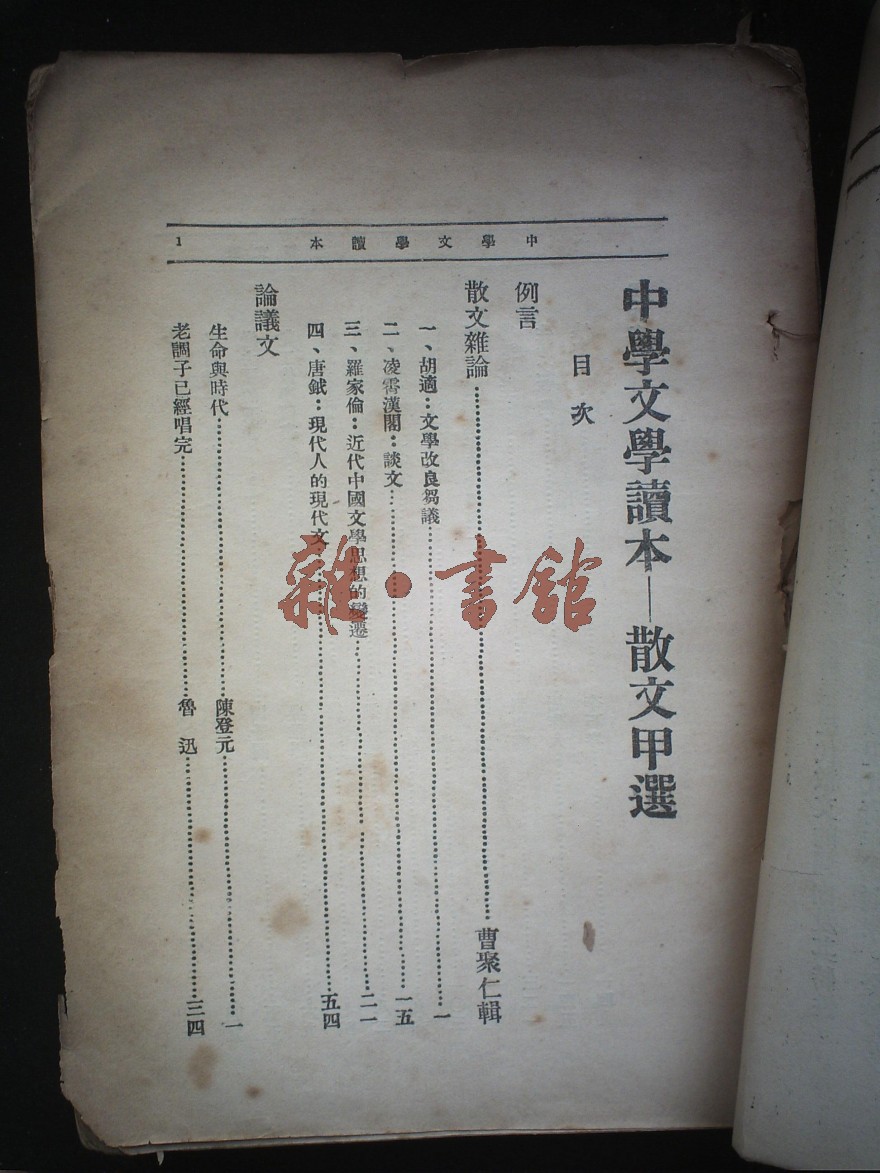 中學文學讀本
1
中學文學讀本—散文甲選
目次
例言
散文雜論……曹聚仁輯
一、胡適：文學改良芻議……一
二、凌霄漢閣：談文……一五
三、羅家倫：近代中國文學思想的變遷……二一
四、唐鉞：現代人的現代文……五四
論議文
生命與時代……陳登元……一
老調子已經唱完……魯迅……三四
雜·書館